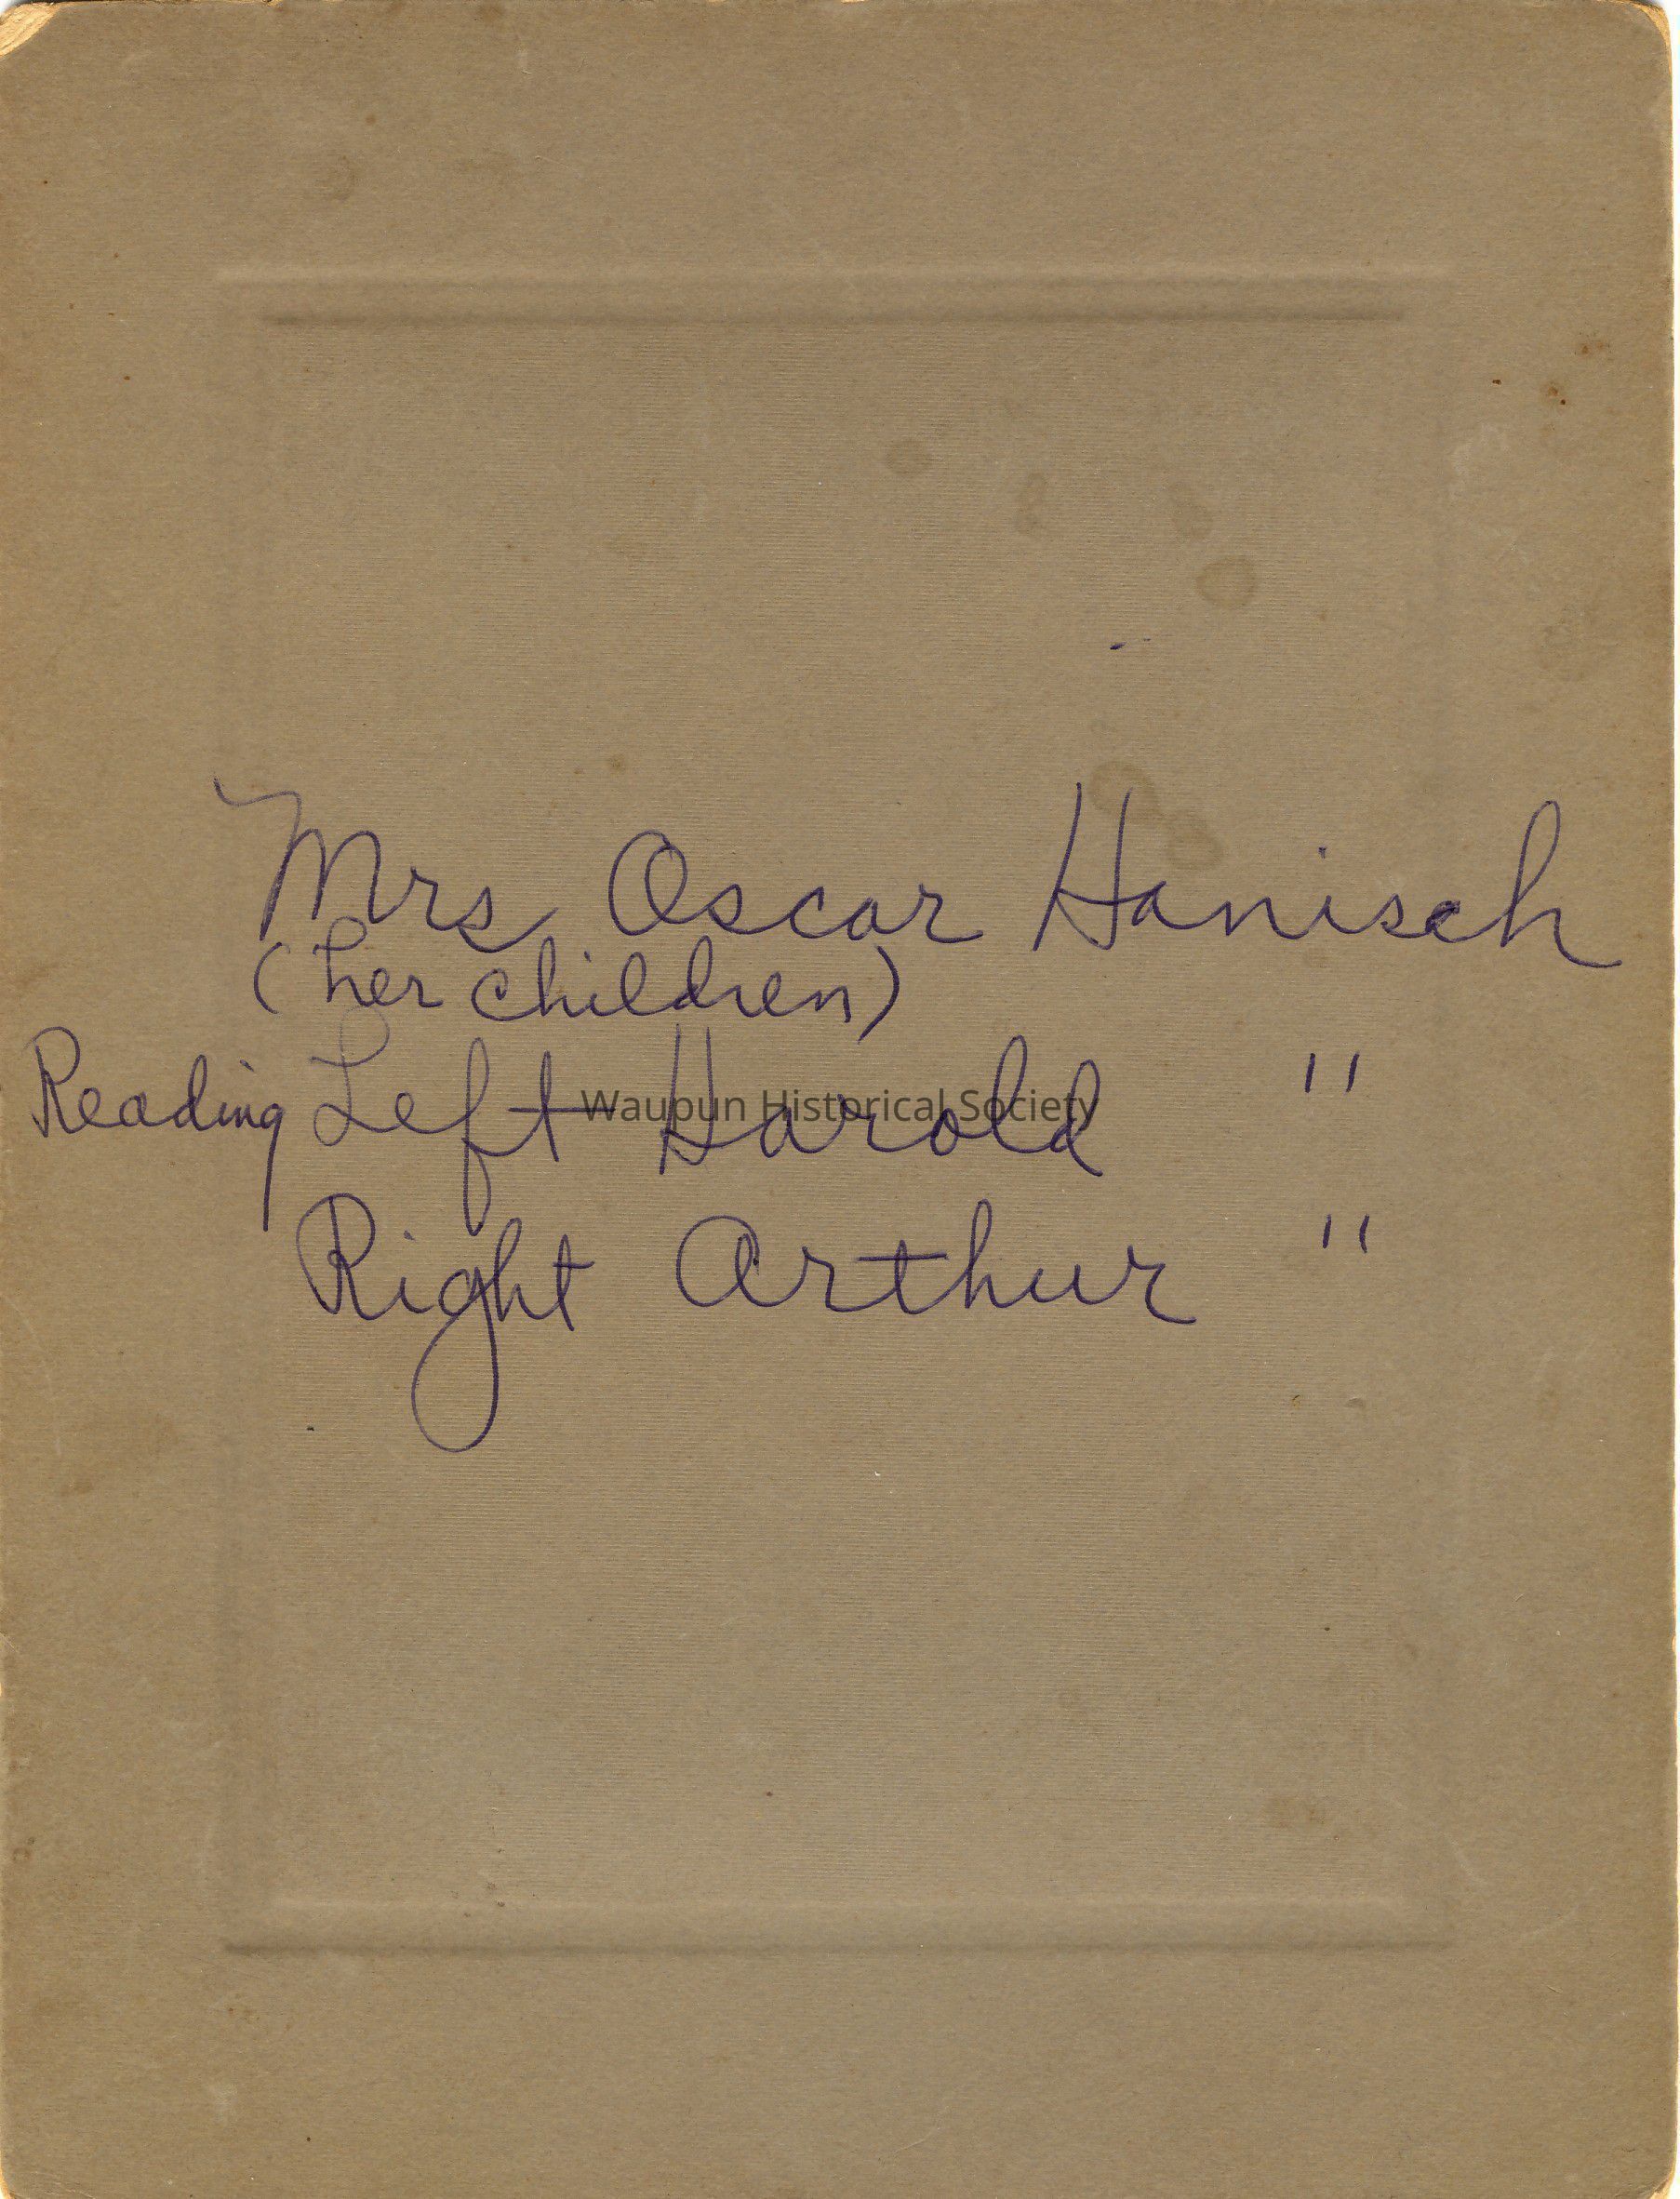 Mrs Oscar Hanisch
(her children)
Reading Left Harold "
Waupun Historical Society
Right Arthur "